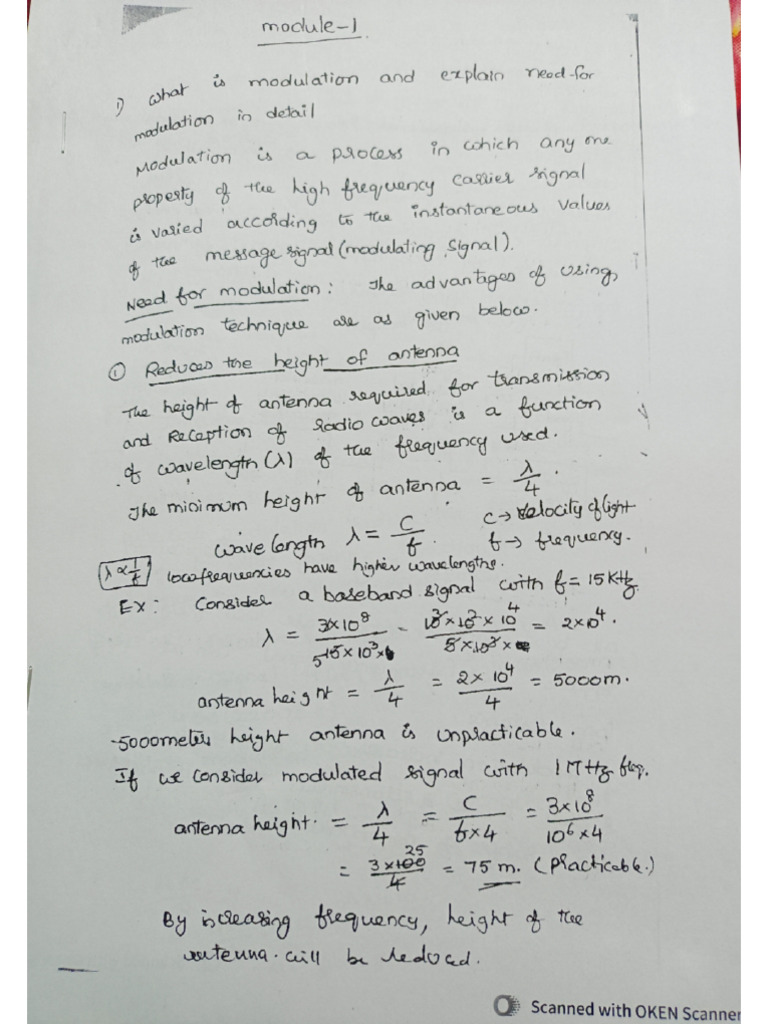 module-1
1) what is modulation and explain need-for
modulation in detail
Modulation is a process in which any one
property of the high frequency carrier signal
is varied according to the instantaneous values
of the message signal (modulating signal).
Need for modulation: The advantages of using,
modulation technique are as given below.
① Reduces the height of antenna
The height of antenna required for transmission
and Reception of radio waves is a function
of wavelength (λ) of the frequency used.
The minimum height of antenna = λ/4.
wave length λ = C/f c→ velocity of light
f→ frequency.
λ∝1/f low frequencies have higher wavelengths.
Ex: Consider a baseband signal with f= 15KHz
λ = 3×10⁸ / 15×10³ = 10²×10⁴ / 5×10³ = 2×10⁴.
antenna height = λ/4 = 2×10⁴/4 = 5000m.
-5000meter height antenna is unpracticable.
If we consider modulated signal with 1MHz freq.
antenna height. = λ/4 = C/f×4 = 3×10⁸/10⁶×4
= 3×100/4 25 = 75 m. (practicable.)
By increasing frequency, height of the
antenna. will be reduced.
Scanned with OKEN Scanner